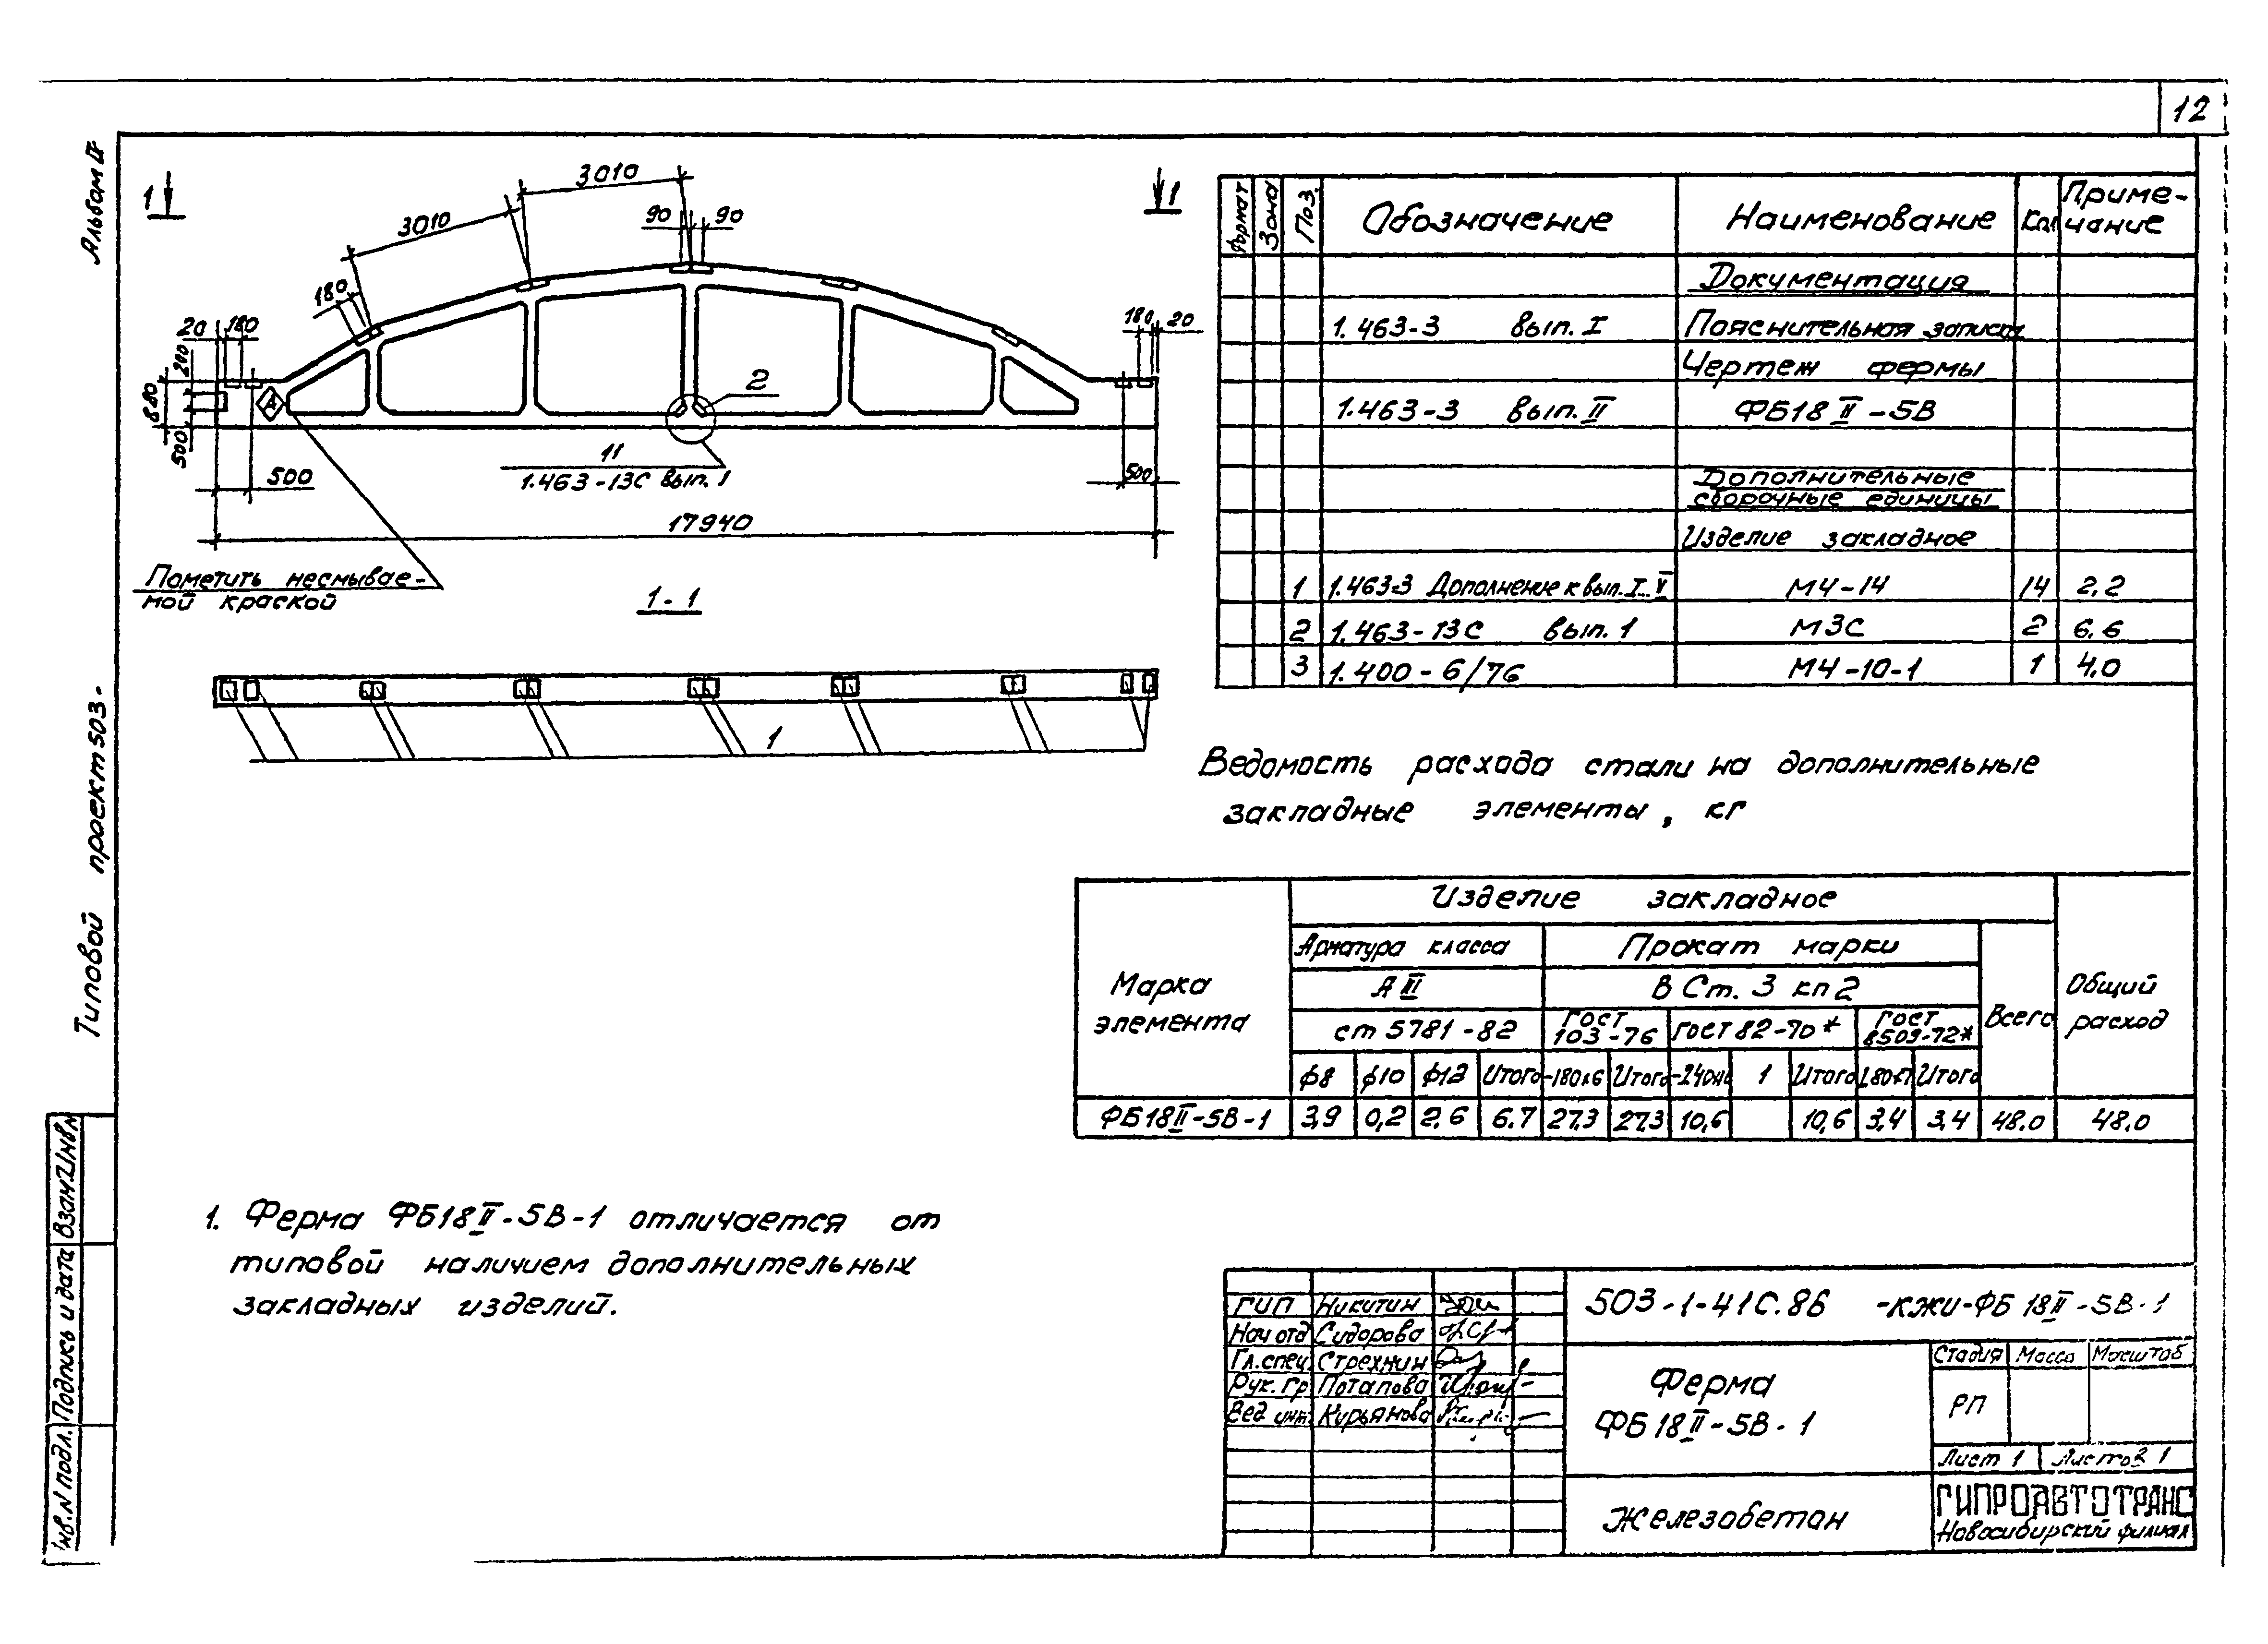 12
Альбом IV
Типовой проект 503-
1
1
3010
3010
90
90
180
20
180
180
20
200
880
500
А
2
11
1.463-13С вып. 1
500
500
17940
Пометить несмывае-
мой краской
1-1
1
Формат
Зона
Поз.
Обозначение
Наименование
Кол
Приме-
чание
Документация
1.463-3 вып. I
Пояснительная записка
Чертеж фермы
1.463-3 вып. II
ФБ18 II-5В
Дополнительные
сборочные единицы
Изделие закладное
1 1.463-3 Дополнение к вып. I...V М4-14 14 2,2
2 1.463-13С вып. 1 М3С 2 6.6
3 1.400-6/76 М4-10-1 1 4.0
Ведомость расхода стали на дополнительные
закладные элементы, кг
Марка
элемента
Изделие закладное
Арматура класса
Прокат марки
А III
В Ст. 3 кп 2
ст 5781-82
ГОСТ
103-76
ГОСТ 82-70*
ГОСТ
8509-72*
Всего
Общий
расход
ф8 ф10 ф12 Итого -180х6 Итого 1 Итого Итого
ФБ18 II-5В-1 3,9 0,2 2.6 6.7 27.3 27.3 10,6 10,6 3,4 3,4 48.0 48.0
1. Ферма ФБ18 II-5В-1 отличается от
типовой наличием дополнительных
закладных изделий.
Инв.N подл.
Подпись и дата
Взам. инв. N
ГИП Никитин
Нач отд Сидорова
Гл.спец. Стрехнин
Рук. гр Потапова
Вед инж. Кирьянова
503-1-41С.86 -КЖИ-ФБ 18 II-5В-1
Ферма
ФБ 18 II-5В-1
Стадия Масса Масштаб
РП
Лист 1 Листов 1
Железобетон
ГИПРОАВТОТРАНС
Новосибирский филиал